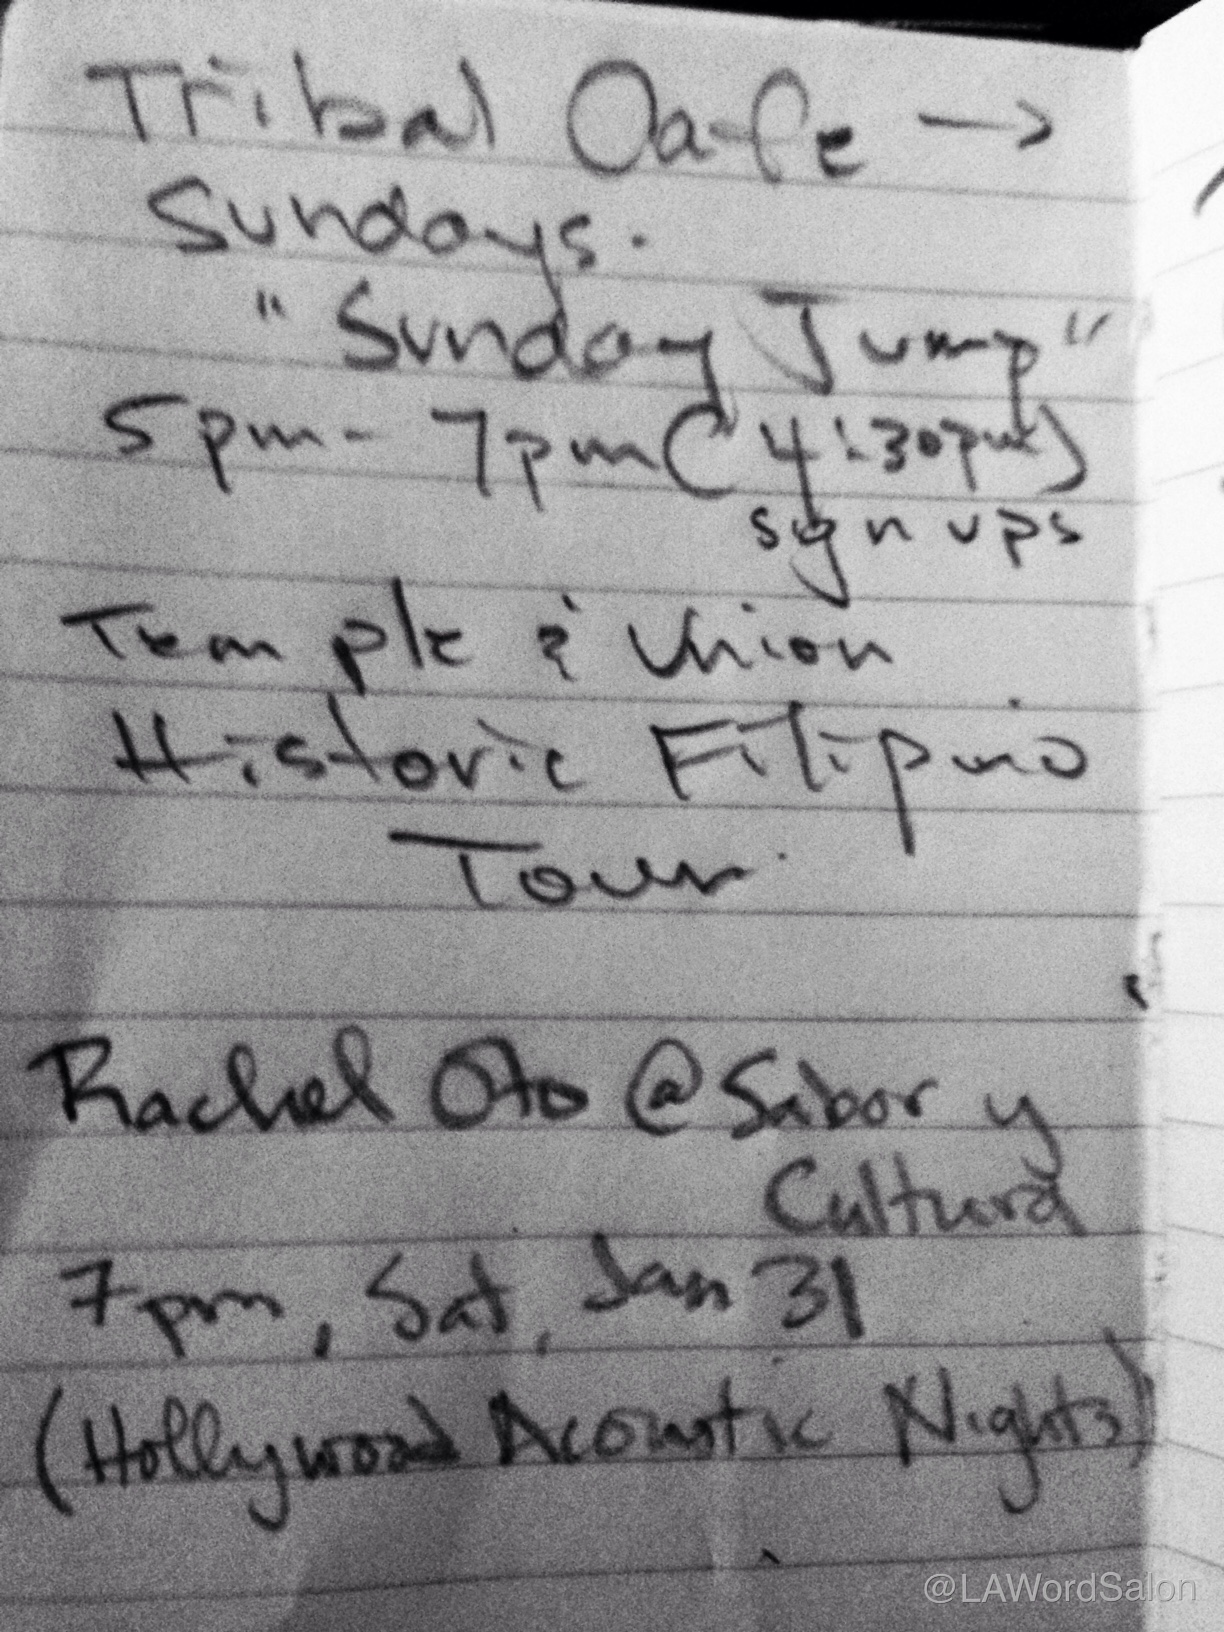 Tribal Cafe →
Sundays.
"Sunday Jump"
5pm - 7pm (4:30pm)
sign ups
Temple & Union
Historic Filipino
Tour.
Rachel Oto @ Sabor y
Cultura
7pm, Sat, Jan 31
(Hollywood Acoustic Nights)
@LAWordSalon